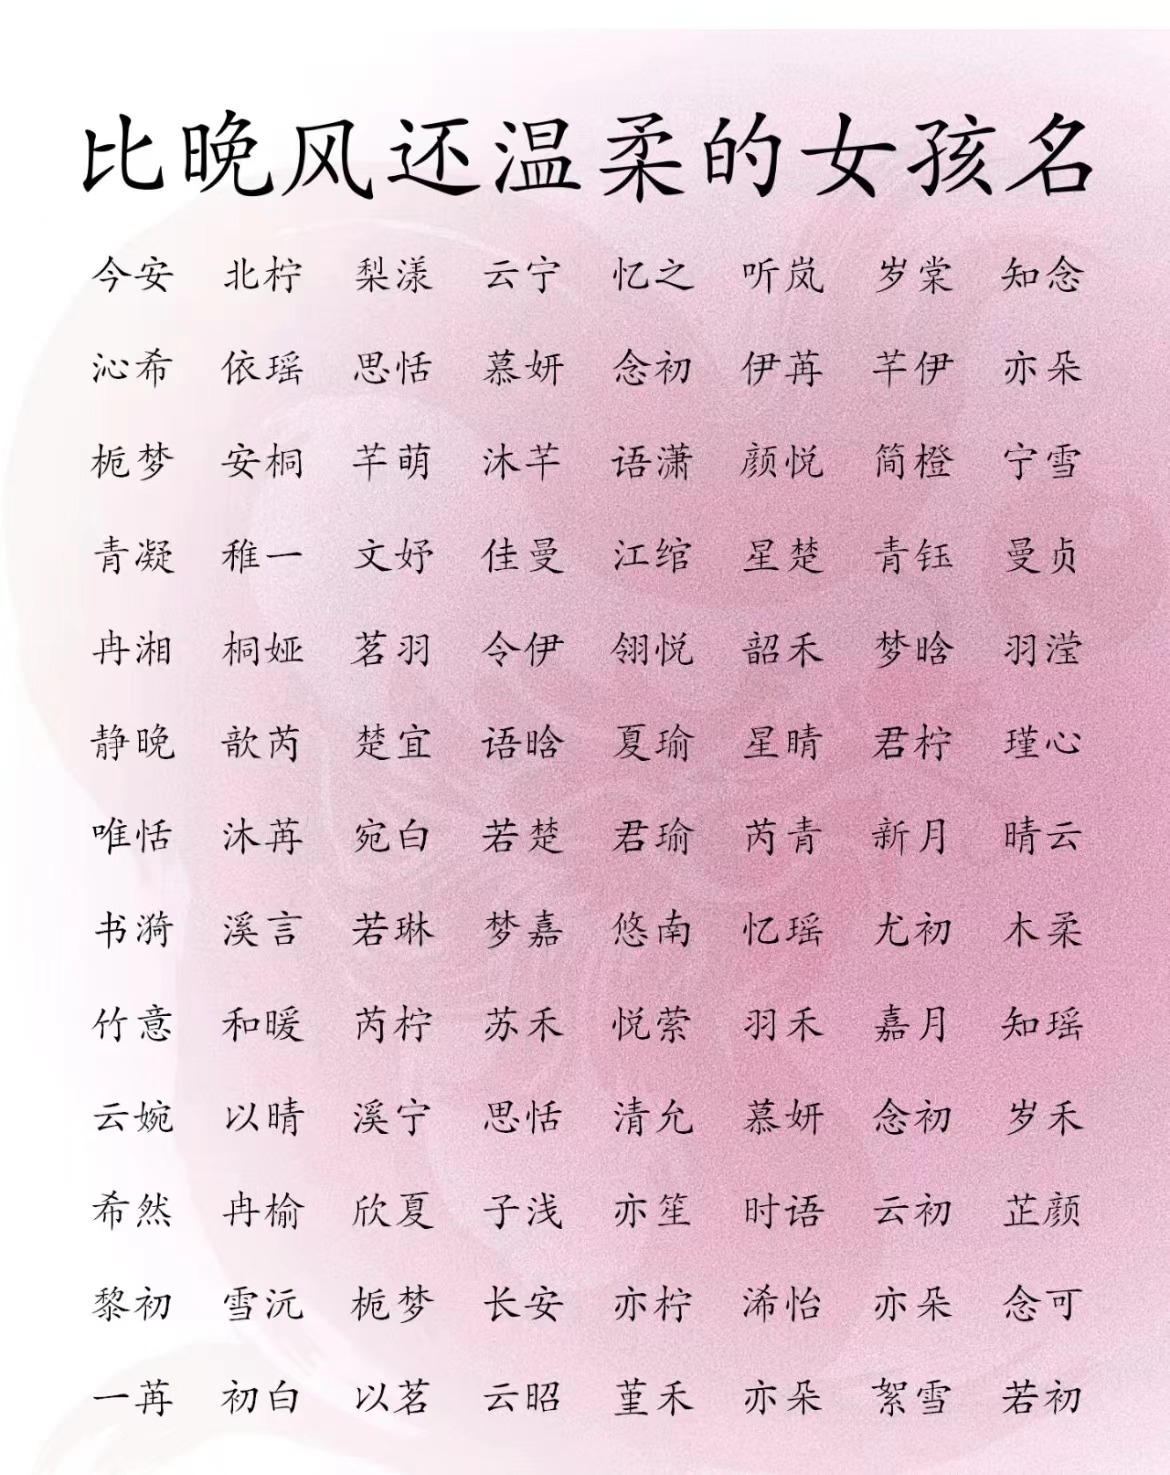 比晚风还温柔的女孩名
今安 北柠 梨漾 云宁 忆之 听岚 岁棠 知念
沁希 依瑶 思恬 慕妍 念初 伊苒 芊伊 亦朵
栀梦 安桐 芊萌 沐芊 语潇 颜悦 简橙 宁雪
青凝 稚一 文妤 佳曼 江绾 星楚 青钰 曼贞
冉湘 桐娅 茗羽 令伊 翎悦 韶禾 梦晗 羽滢
静晚 歆芮 楚宜 语晗 夏瑜 星晴 君柠 瑾心
唯恬 沐苒 宛白 若楚 君瑜 芮青 新月 晴云
书漪 溪言 若琳 梦嘉 悠南 忆瑶 尤初 木柔
竹意 和暖 芮柠 苏禾 悦萦 羽禾 嘉月 知瑶
云婉 以晴 溪宁 思恬 清允 慕妍 念初 岁禾
希然 冉榆 欣夏 子浅 亦笙 时语 云初 芷颜
黎初 雪沅 栀梦 长安 亦柠 浠怡 亦朵 念可
一苒 初白 以茗 云昭 堇禾 亦朵 絮雪 若初